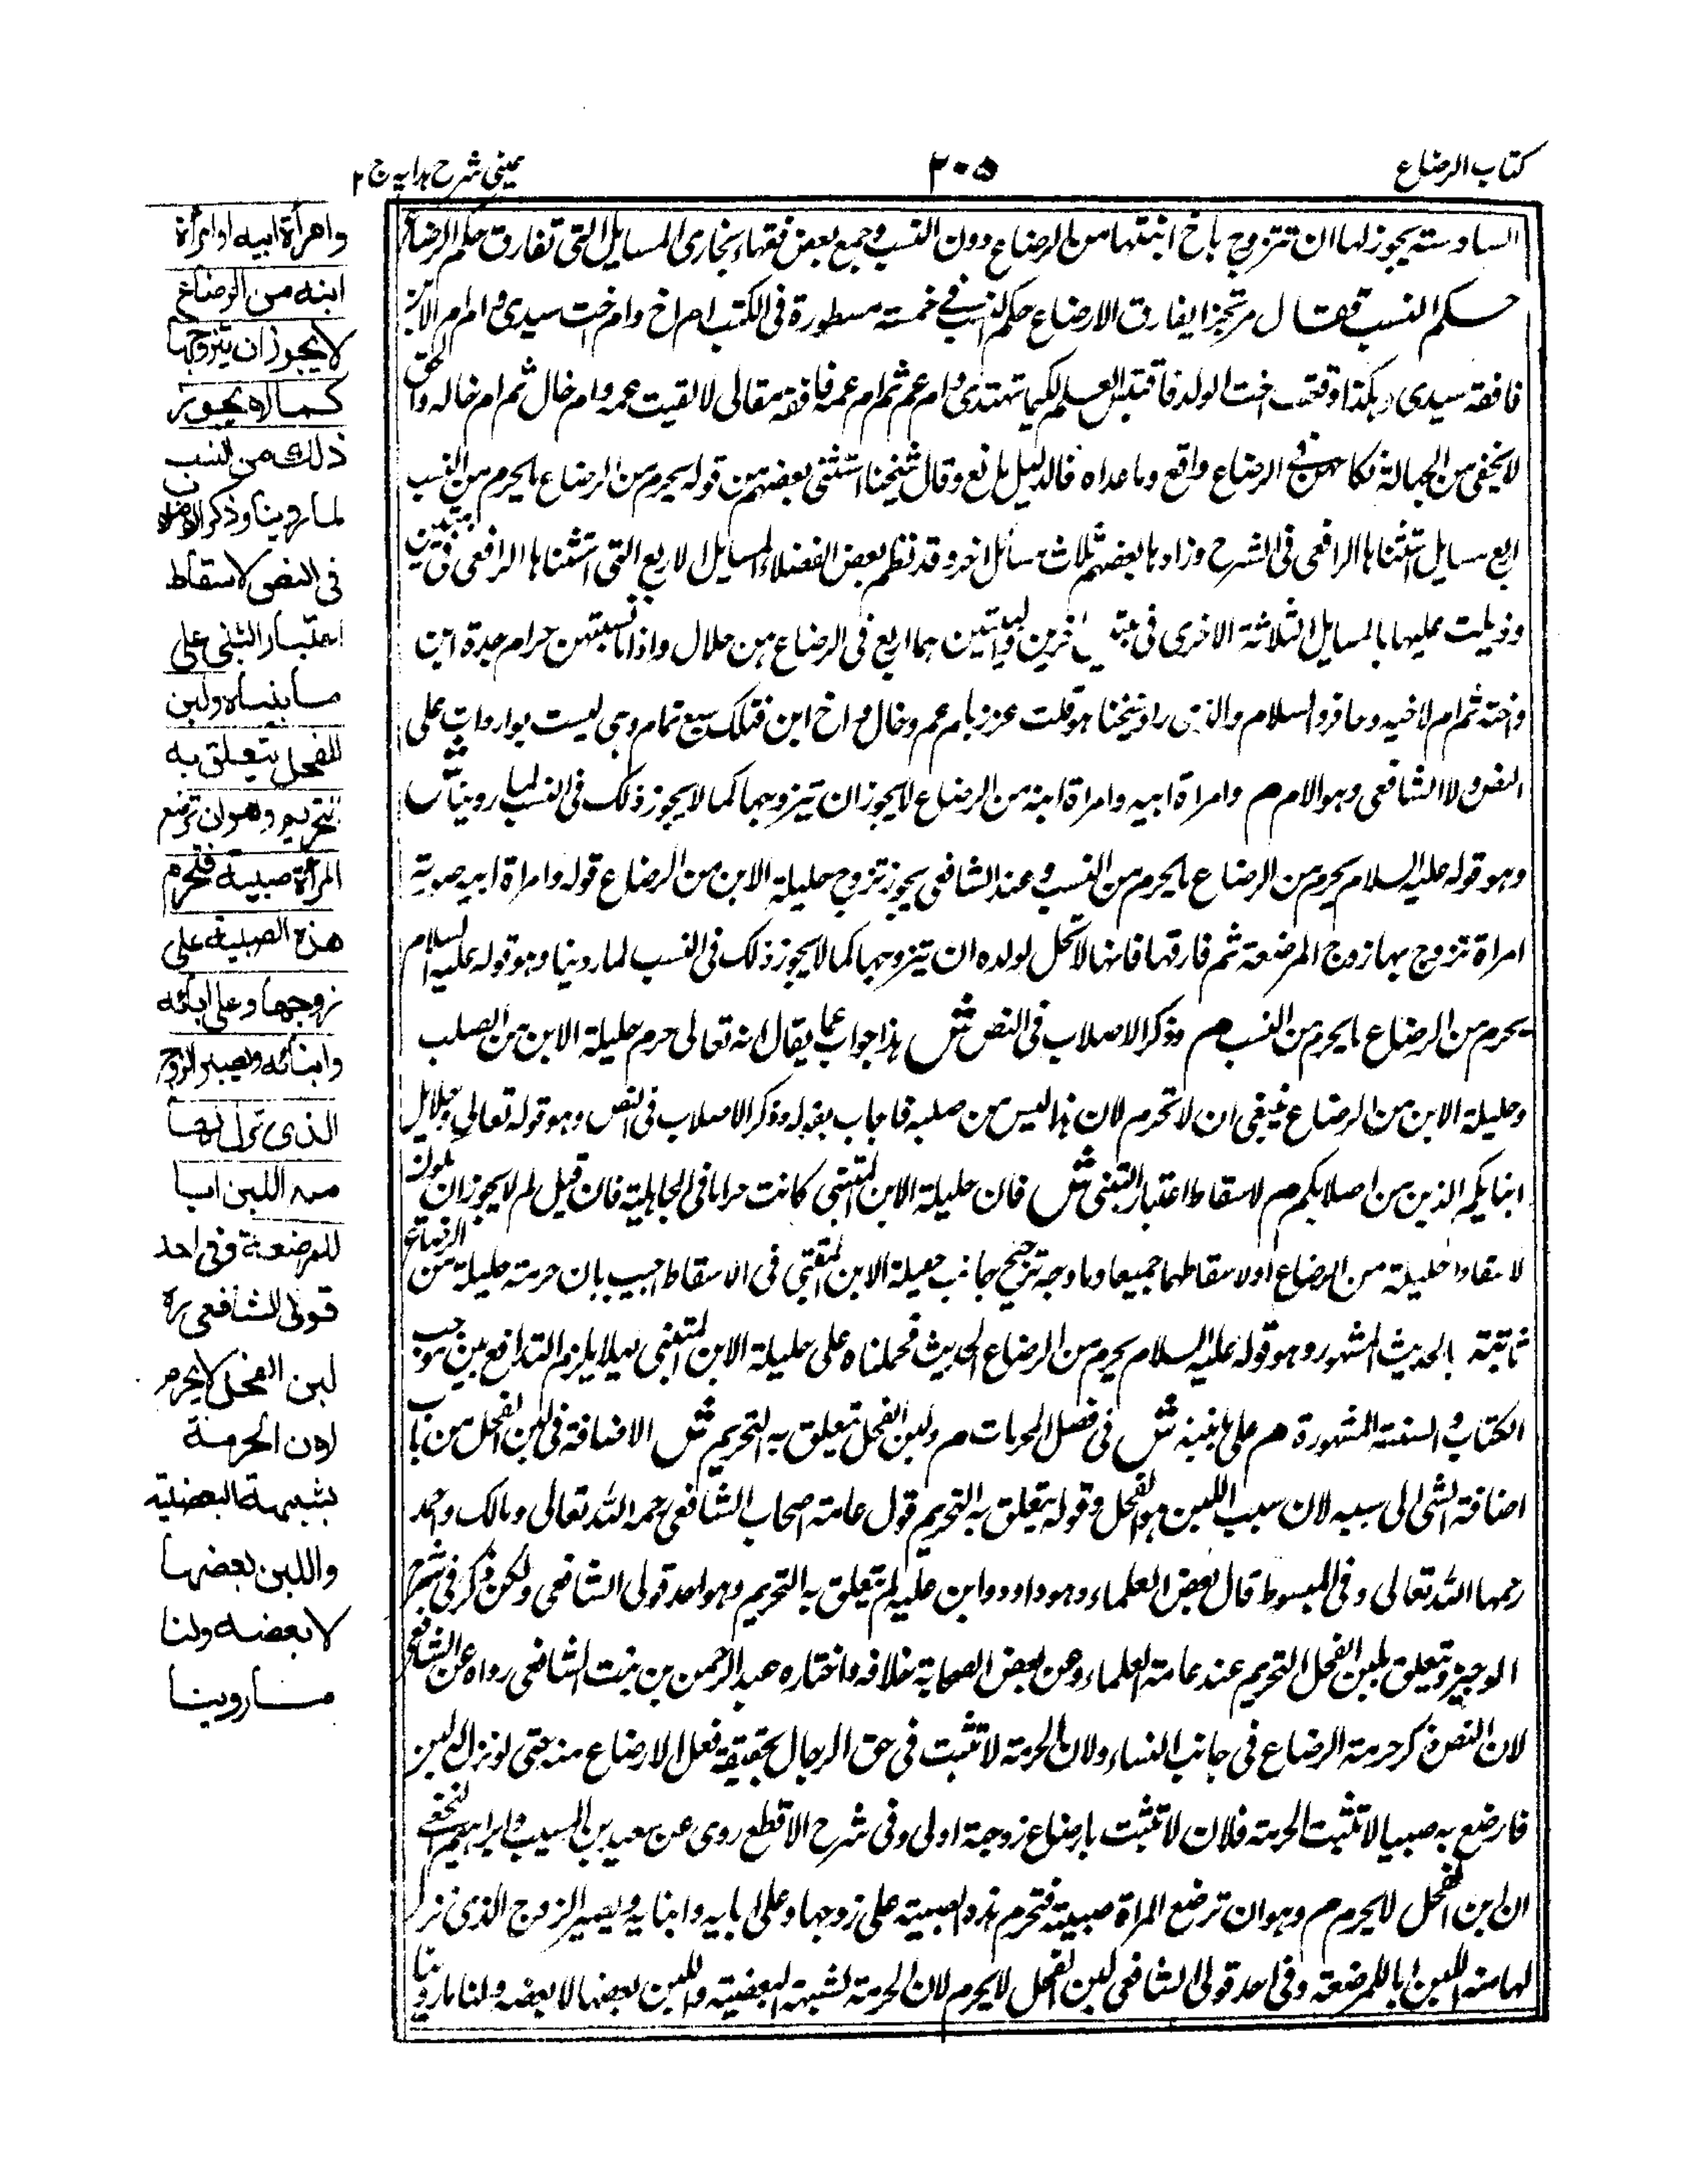 كتاب الرضاع
٢٠٥
عينى شرح هدايه ج ٢
السادسة يجوز لها ان تتزوج باخ ابنتها من الرضاع دون النسب وجمع بعض فقهاء بخارى المسايل التى تفارق حكم الرضاع
حكم النسب فقال مرتجزا يفارق الارضاع حكم النسب فى خمسة مسطورة فى الكتب ام اخ وام اخت سيدى وام ام الابن
فافقه سيدى وهكذا وقعت اخت الولد فاقتبس العلم لكيما تهتدى وام عم ثم ام عمة فافقه مقالى لا لقيت عمه وام خال ثم ام خاله والحق
لا يخفى من الجهالة نكاحهن فى الرضاع واقع وما عداه فالدليل مانع وقال شيخنا استثنى بعضهم من قوله يحرم من الرضاع ما يحرم من النسب
اربع مسايل استثناها الرافعى فى الشرح وزادها بعضهم ثلاث مسائل اخر وقد نظم بعض الفضلاء المسايل الاربع التى استثناها الرافعى فى بيتين
وذيلت عليها بالمسايل الثلاثة الاخرى فى اخرين والبيتين هما اربع فى الرضاع هن حلال واذا ما نسبتهن حرام جدة ابن
واخته ثم ام لاخيه وحافد والسلام والذى زاد شيخنا هو قلت عزز بام عم وخال واخ ابن فتلك سبع تمام وهى ليست بواردات على
النص ولا الشافعى وهو الامام م وامراة ابيه وامراة ابنه من الرضاع لا يجوز ان يتزوجها كما لا يجوز ذلك فى النسب لما روينا ش
وهو قوله عليه السلام يحرم من الرضاع ما يحرم من النسب وعند الشافعى يجوز تزوج حليلة الابن من الرضاع قوله وامراة ابيه صورته
امراة تزوج بها زوج المرضعة ثم فارقها فانها لا تحل لولده ان يتزوجها كما لا يجوز ذلك فى النسب لما روينا وهو قوله عليه السلام
يحرم من الرضاع ما يحرم من النسب م وذكر الاصلاب فى النص ش هذا جواب عما يقال انه تعالى حرم حليلة الابن من الصلب
وحليلة الابن من الرضاع ينبغى ان لا تحرم لان هذا ليس من صلبه فاجاب بقوله وذكر الاصلاب فى النص وهو قوله تعالى وحلايل
ابنايكم الذين من اصلابكم م لاسقاط اعتبار التبنى ش فان حليلة الابن المتبنى كانت حراما فى الجاهلية فان قيل لم لا يجوز ان يكون
لاسقاط حليلة من الرضاع او لاسقاطهما جميعا وما وجه ترجيح جانب حليلة الابن المتبنى فى الاسقاط اجيب بان حرمة حليلة من الرضاع
ثابتة بالحديث المشهور وهو قوله عليه السلام يحرم من الرضاع الحديث فحملناه على حليلة الابن المتبنى ليلا يلزم التدافع بين موجب
الكتاب والسنة المشهورة م على ما بينه ش فى فصل المحرمات م ولبن الفحل يتعلق به التحريم ش الاضافة فى لبن الفحل من باب
اضافة الشى الى سببه لان سبب اللبن هو الفحل وقوله يتعلق به التحريم قول عامة اصحاب الشافعى رحمه الله تعالى ومالك واحمد
رحمها الله تعالى وفى المبسوط قال بعض العلماء وهو داود وابن علية لم يتعلق به التحريم وهو احد قولى الشافعى ولكن ذكر فى شرح
الوجيز ويتعلق بلبن الفحل التحريم عند عامة العلماء وعن بعض الصحابة خلافه واختاره عبد الرحمن بن بنت الشافعى رواه عن الشافعى
لان النص ذكر حرمة الرضاع فى جانب النساء ولان الحرمة لا تثبت فى حق الرجال بحقيقة فعل الارضاع منه حتى لو نزل له لبن
فارضع به صبيا لا تثبت الحرمة فلان لا تثبت بارضاع زوجة اولى وفى شرح الاقطع روى عن سعيد بن المسيب وابراهيم النخعى
ان لبن الفحل لا يحرم م وهو ان ترضع المراة صبية فتحرم هذه الصبية على زوجها وعلى ابايه وابنايه ويصير الزوج الذى نزل
لها منه اللبن ابا للمرضعة وفى احد قولى الشافعى لبن الفحل لا يحرم لان الحرمة لشبهة البعضية واللبن بعضها لا بعضه ولنا ما روينا
وامرأة ابيه او امرأة
ابنه من الرضاع
لا يجوز ان يتزوجها
كما لا يجوز
ذلك من النسب
لما روينا وذكر الاصلاب
فى النص لاسقاط
اعتبار التبنى على
ما بيناه ولبن
الفحل يتعلق به
التحريم وهو ان ترضع
المرأة صبية فتحرم
هذه الصبية على
زوجها وعلى ابائه
وابنائه ويصير الزوج
الذى نزل لها
منه اللبن ابا
للمرضعة وفى احد
قولى الشافعى ره
لبن الفحل لا يحرم
لان الحرمة
بشبهة البعضية
واللبن بعضها
لا بعضه ولنا
ما روينا